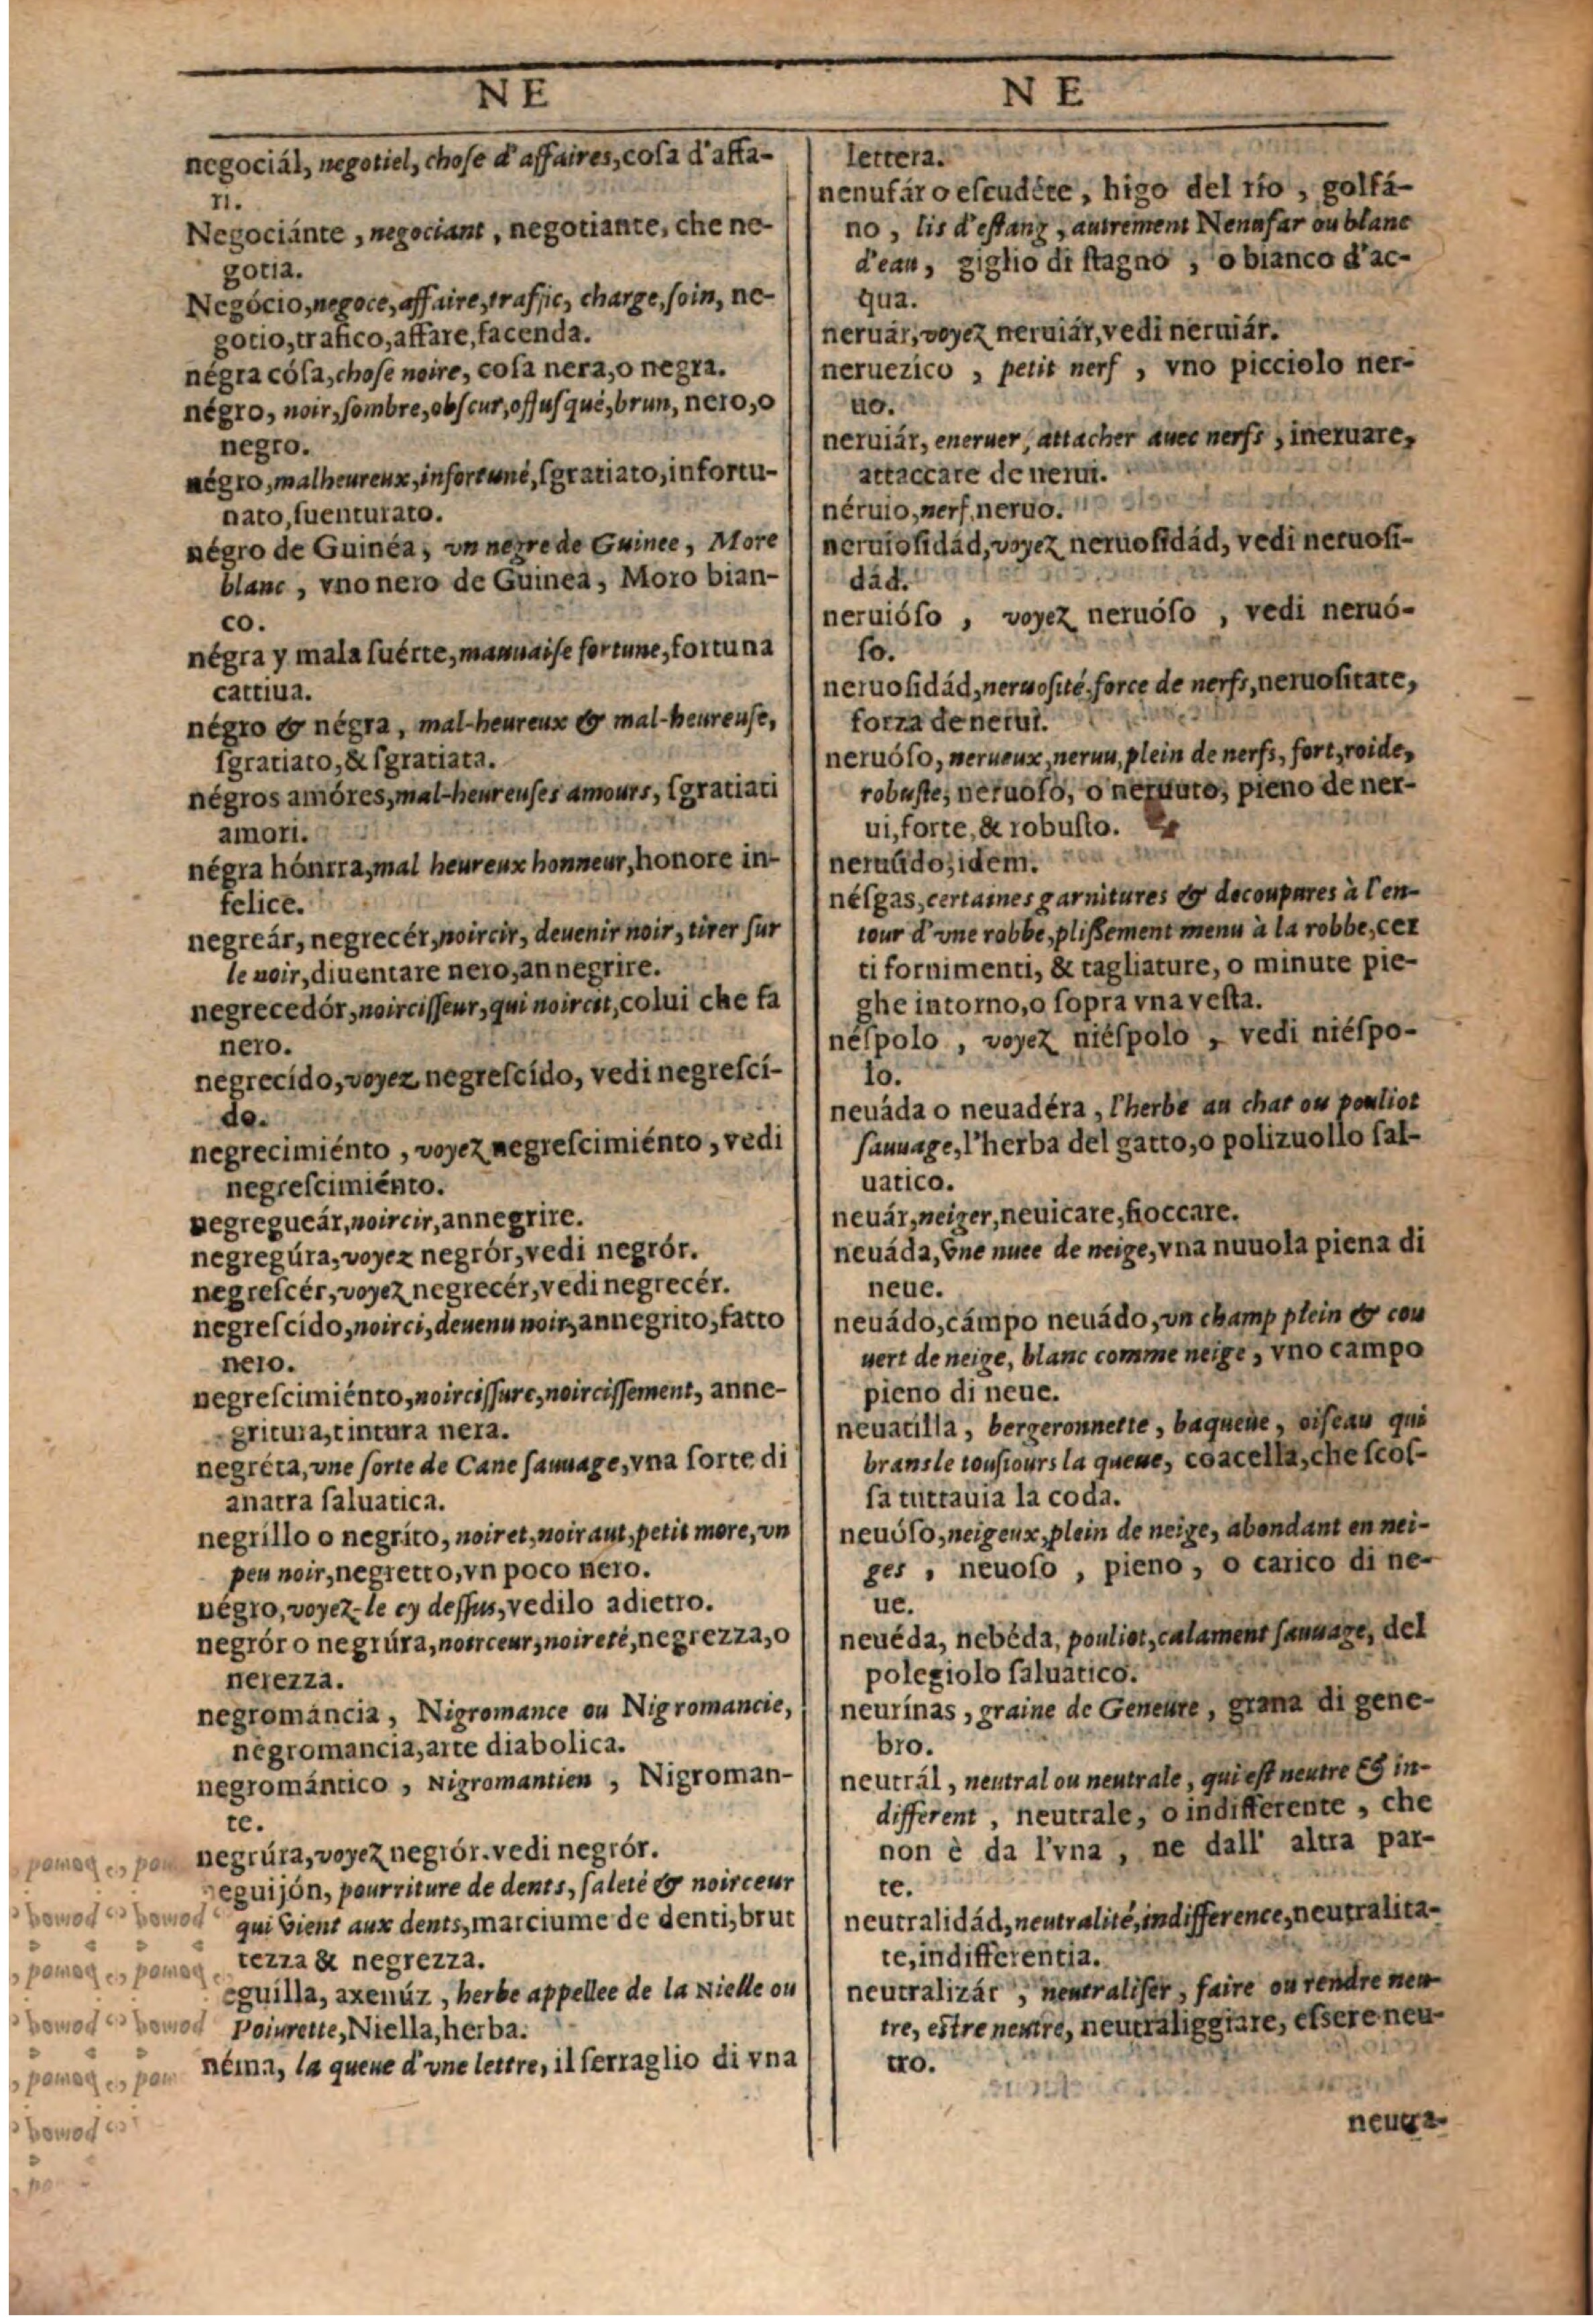 NE
negociál, negotiel, chose d'affaires, cosa d'affa-
ri.
Negociánte, negociant, negotiante, che ne-
gotia.
Negócio, negoce, affaire, traffic, charge, soin, ne-
gotio, trafico, affare, facenda.
négra cósa, chose noire, cosa nera, o negra.
négro, noir, sombre, obscur, offusqué, brun, nero, o
negro.
négro, malheureux, infortuné, sgratiato, infortu-
nato, suenturato.
négro de Guinéa, vn negre de Guinee, More
blanc, vno nero de Guinea, Moro bian-
co.
négra y mala suérte, mauuaise fortune, fortuna
cattiua.
négro & négra, mal-heureux & mal-heureuse,
sgratiato, & sgratiata.
négros amóres, mal-heureuses amours, sgratiati
amori.
négra hónrra, mal heureux honneur, honore in-
felice.
negreár, negrecér, noircir, deuenir noir, tirer sur
le noir, diuentare nero, annegrire.
negrecedór, noircisseur, qui noircit, colui che fa
nero.
negrecído, voyez negrescído, vedi negrescí-
do.
negrecimiénto, voyez negrescimiénto, vedi
negrescimiénto.
negregueár, noircir, annegrire.
negregúra, voyez negrór, vedi negrór.
negrescér, voyez negrecér, vedi negrecér.
negrescido, noirci, deuenu noir, annegrito, fatto
nero.
negrescimiénto, noircissure, noircissement, anne-
gritura, tintura nera.
negréta, vne sorte de Cane sauuage, vna sorte di
anatra saluatica.
negríllo o negríto, noiret, noiraut, petit more, vn
peu noir, negretto, vn poco nero.
négro, voyez-le cy dessus, vedilo adietro.
negrór o negrúra, noirceur, noireté, negrezza, o
nerezza.
negrománcia, Nigromance ou Nigromancie,
negromancia, arte diabolica.
negromántico, Nigromantien, Nigroman-
te.
negrúra, voyez negrór. vedi negrór.
eguijón, pourriture de dents, saleté & noirceur
qui vient aux dents, marciume de denti, brut
tezza & negrezza.
eguilla, axenúz, herbe appellee de la Nielle ou
Poiurette, Niella, herba.
néma, la queue d'vne lettre, il serraglio di vna
NE
lettera.
nenufár o escudéte, higo del río, golfá-
no, lis d'estang, autrement Nenufar ou blanc
d'eau, giglio di stagno, o bianco d'ac-
qua.
neruár, voyez neruiár, vedi neruiár.
neruezico, petit nerf, vno picciolo ner-
uo.
neruiár, eneruer, attacher auec nerfs, ineruare,
attaccare de nerui.
néruio, nerf, neruo.
neruiosidád, voyez neruosidád, vedi neruosi-
dád.
neruióso, voyez neruóso, vedi neruó-
so.
neruosidád, neruosité, force de nerfs, neruositate,
forza de nerui.
neruóso, nerueux, neruu, plein de nerfs, fort, roide,
robuste, neruoso, o neruuto, pieno de ner-
ui, forte, & robusto.
neruúdo, idem.
nésgas, certaines garnitures & decoupures à l'en-
tour d'vne robbe, plissement menu à la robbe, cer
ti fornimenti, & tagliature, o minute pie-
ghe intorno, o sopra vna vesta.
néspolo, voyez niéspolo, vedi niéspo-
lo.
neuáda o neuadéra, l'herbe au chat ou pouliot
sauuage, l'herba del gatto, o polizuollo sal-
uatico.
neuár, neiger, neuicare, fioccare.
neuáda, vne nuee de neige, vna nuuola piena di
neue.
neuádo, cámpo neuádo, vn champ plein & cou
uert de neige, blanc comme neige, vno campo
pieno di neue.
neuatilla, bergeronnette, baqueüe, oiseau qui
bransle tousiours la queue, coacella, che scos-
sa tuttauia la coda.
neuóso, neigeux, plein de neige, abondant en nei-
ges, neuoso, pieno, o carico di ne-
ue.
neuéda, nebéda, pouliot, calament sauuage, del
polegiolo saluatico.
neurínas, graine de Geneure, grana di gene-
bro.
neutrál, neutral ou neutrale, qui est neutre & in-
different, neutrale, o indifferente, che
non è da l'vna, ne dall' altra par-
te.
neutralidád, neutralité, indifference, neutralita-
te, indifferentia.
neutralizár, neutraliser, faire ou rendre neu-
tre, estre neutre, neutraliggiare, essere neu-
tro.
neutra-